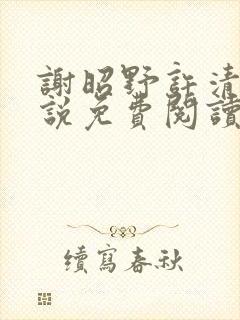 謝昭野許清
說免費閱讀
續寫春秋